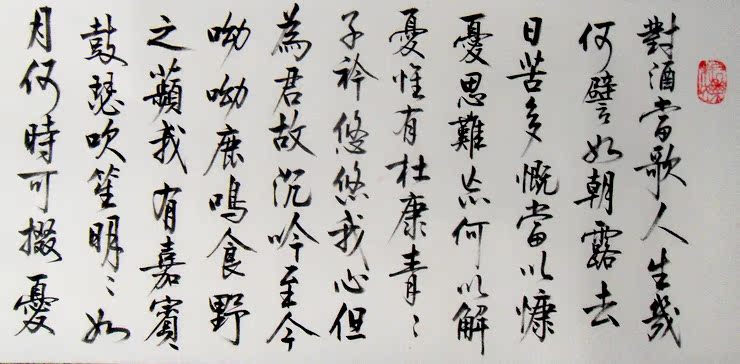 對酒當歌人生幾
何譬如朝露去
日苦多慨當以慷
憂思難忘何以解
憂惟有杜康青〻
子衿悠悠我心但
為君故沉吟至今
呦呦鹿鳴食野
之蘋我有嘉賓
鼓瑟吹笙明〻如
月何時可掇憂